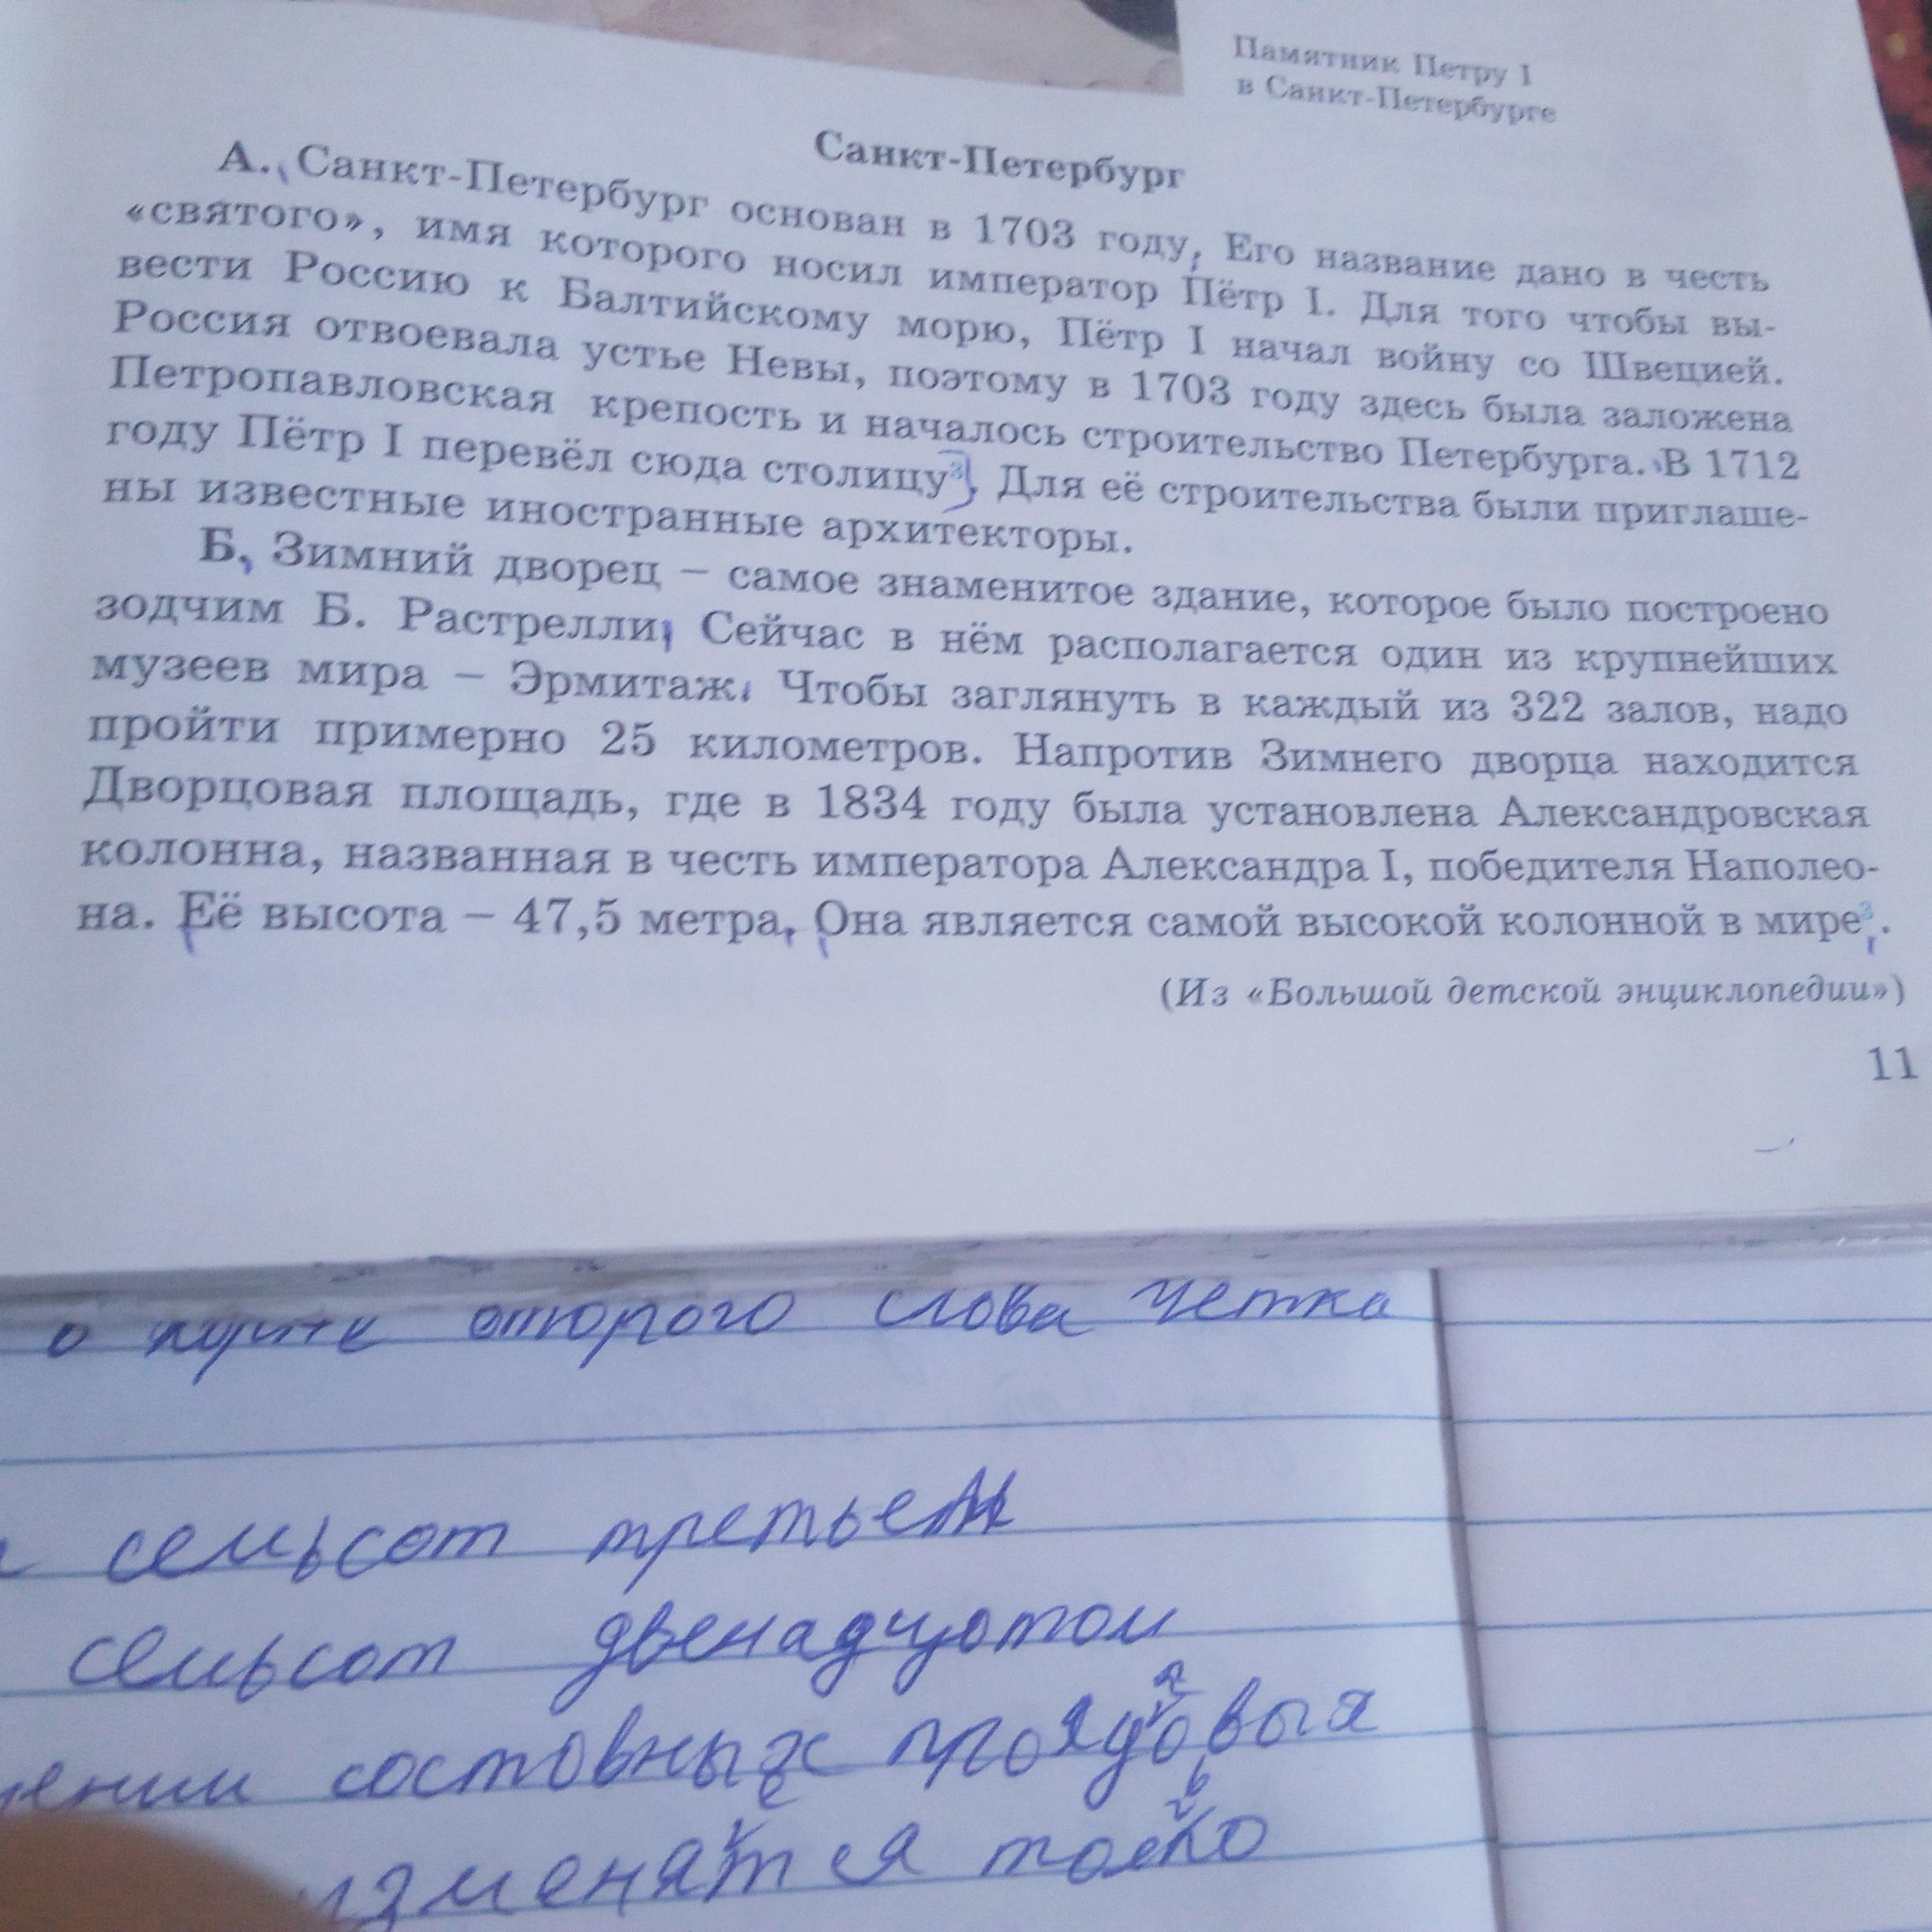 Памятник Петру I
в Санкт-Петербурге
Санкт-Петербург
А. Санкт-Петербург основан в 1703 году. Его название дано в честь
«святого», имя которого носил император Пётр I. Для того чтобы вы-
вести Россию к Балтийскому морю, Пётр I начал войну со Швецией.
Россия отвоевала устье Невы, поэтому в 1703 году здесь была заложена
Петропавловская крепость и началось строительство Петербурга. В 1712
году Пётр I перевёл сюда столицу³. Для её строительства были приглаше-
ны известные иностранные архитекторы.
Б. Зимний дворец – самое знаменитое здание, которое было построено
зодчим Б. Растрелли. Сейчас в нём располагается один из крупнейших
музеев мира – Эрмитаж. Чтобы заглянуть в каждый из 322 залов, надо
пройти примерно 25 километров. Напротив Зимнего дворца находится
Дворцовая площадь, где в 1834 году была установлена Александровская
колонна, названная в честь императора Александра I, победителя Наполео-
на. Её высота – 47,5 метра. Она является самой высокой колонной в мире³.
(Из «Большой детской энциклопедии»)
11
о слова
семьсот третьем
семьсот двенадцотом
состовных
изменятся